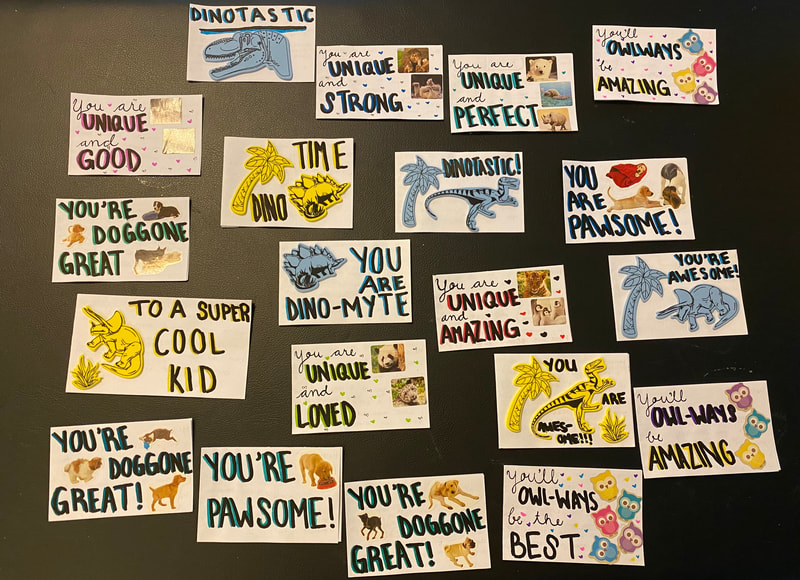 DINOTASTIC
You are
UNIQUE
and
STRONG
You are
UNIQUE
and
PERFECT
You'll
OWLWAYS
be
AMAZING
You are
UNIQUE
and
GOOD
TIME
DINO
DINOTASTIC!
YOU
ARE
PAWSOME!
YOU'RE
DOGGONE
GREAT
YOU
ARE
DINO-MYTE
You are
UNIQUE
and
AMAZING
YOU'RE
AWESOME!
TO A SUPER
COOL
KID
You are
UNIQUE
and
LOVED
YOU
ARE
AWES-
OME!!!
You'll
OWL-WAYS
be
AMAZING
YOU'RE
DOGGONE
GREAT!
YOU'RE
PAWSOME!
YOU'RE
DOGGONE
GREAT!
You'll
OWL-WAYS
be the
BEST